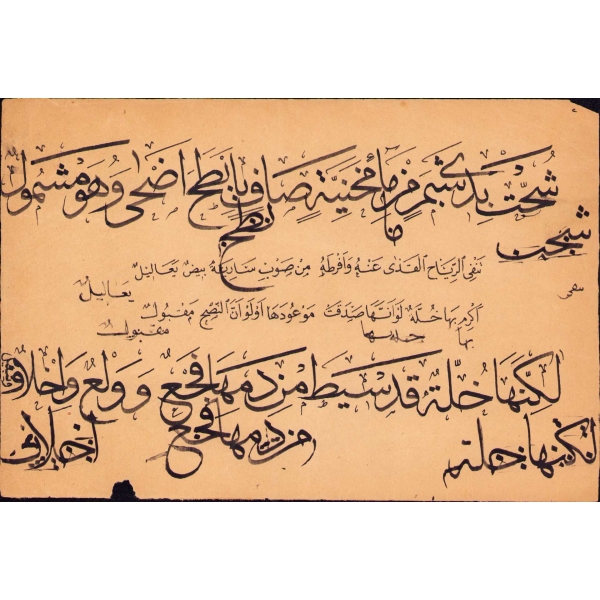 شُجَّتْ بِذِى شَبَمٍ مِنْ مَاءِ مَحْنِيَةٍ صَافٍ بِأَبْطَحَ أَضْحَى وَهُوَ مَشْمُولُ
شجت ما بطح
تَنْفِى الرِّيَاحُ الْقَذَى عَنْهُ وَأَفْرَطَهُ مِنْ صَوْبِ سَارِيَةٍ بِيضٌ يَعَالِيلُ
يعاليل
أَكْرِمْ بِهَا خُلَّةً لَوْ أَنَّهَا صَدَقَتْ مَوْعُودَهَا أَوْ لَوْ أَنَّ النُّصْحَ مَقْبُولُ
بها خلة بها مقبول
لَكِنَّهَا خُلَّةٌ قَدْ سِيطَ مِنْ دَمِهَا فَجْعٌ وَوَلْعٌ وَإِخْلَافٌ وَتَبْدِيلُ
لكنها خلة من دمها فجع اخلاف